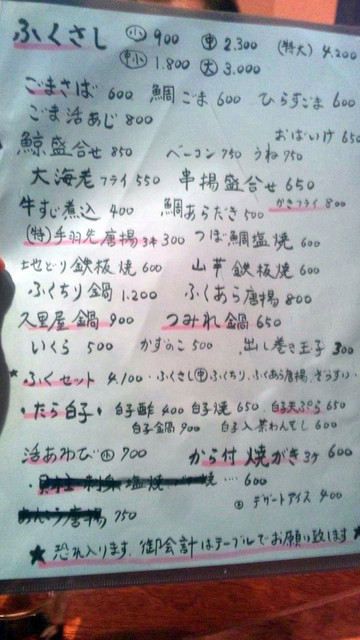 ふくさし ㊙小 900 ㊥ 2.300 (特大) 4.200
中小 1.800 大 3.000
ごまさば 600 鯛ごま 600 ひらすごま 600
ごま活あじ 800
おばいけ 650
鯨盛合せ 850 ベーコン 750 うね 750
大海老フライ 550 串揚盛合せ 650
牛すじ煮込 400 鯛あらだき 500 かきフライ 800
(特)手羽先唐揚 3本 300 つぼ鯛塩焼 600
地どり鉄板焼 600 山芋鉄板焼 600
ふくちり鍋 1.200 ふくあら唐揚 800
久里屋鍋 900 つみれ鍋 650
いくら 500 かずのこ 500 出し巻き玉子 300
★ふくセット 4.100・ふくさし㊥ふくちり、ふくあら唐揚、ぞうすい・
・たら白子・ 白子酢 400 白子焼 650 白子天ぷら 650
白子鍋 900 白子入茶わんむし 600
活あわび 小 900 から付焼がき 3ケ 600
・ 塩焼 焼 .... 600
デザートアイス 400
あんこう唐揚 750
★恐れ入ります、御会計はテーブルでお願い致します★